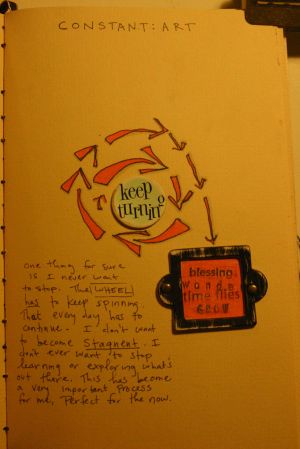 CONSTANT: ART
keep
turnin'
blessing
time flies
GROW
one thing for sure
is I never want
to stop. The WHEEL
has to keep spinning.
That every day has to
continue - I don't want
to become Stagnent. I
don't ever want to stop
learning or exploring what's
out there. This has become
a very important process
for me, Perfect for the now.